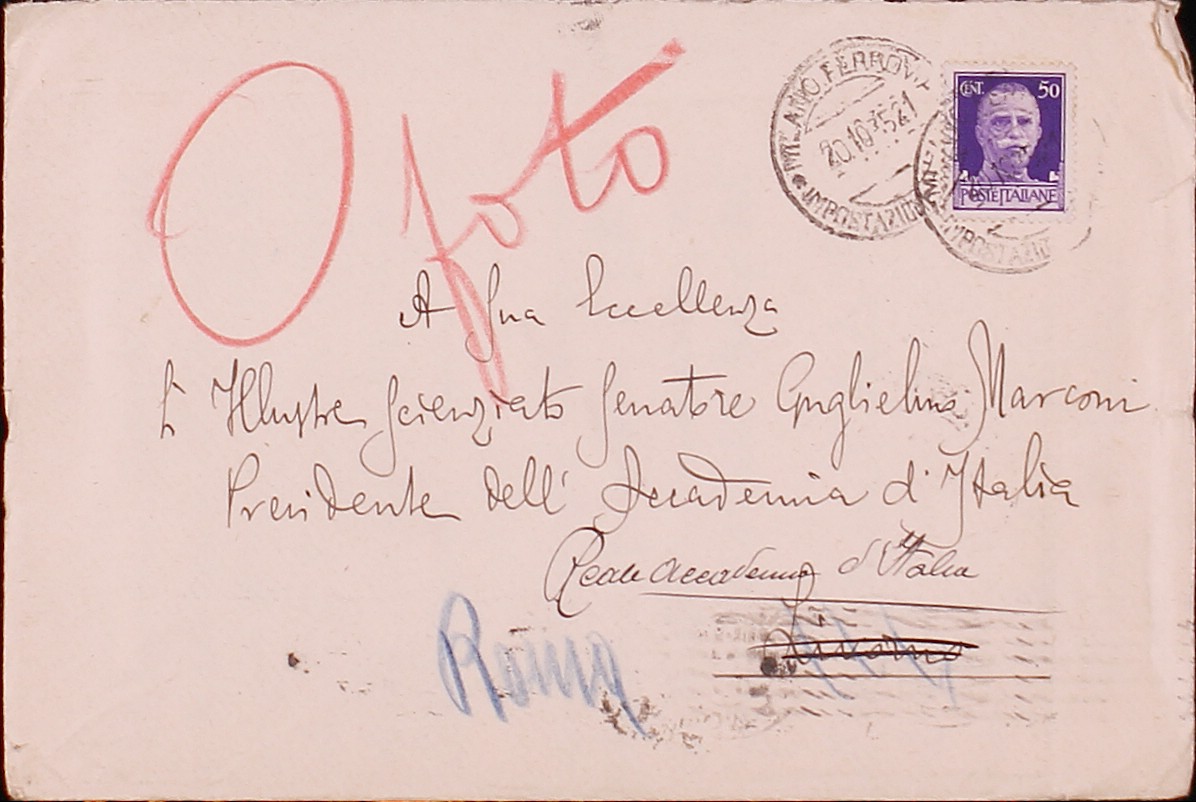 foto
MILANO FERROVIA
20.10.35 21
IMPOSTAZIO
CENT. 50
POSTE ITALIANE
IMPOSTAZIO
A Sua Eccellenza
L'Illustre Scienziato Senatore Guglielmo Marconi
Presidente dell' Accademia d'Italia
Reale Accademia d'Italia
Roma